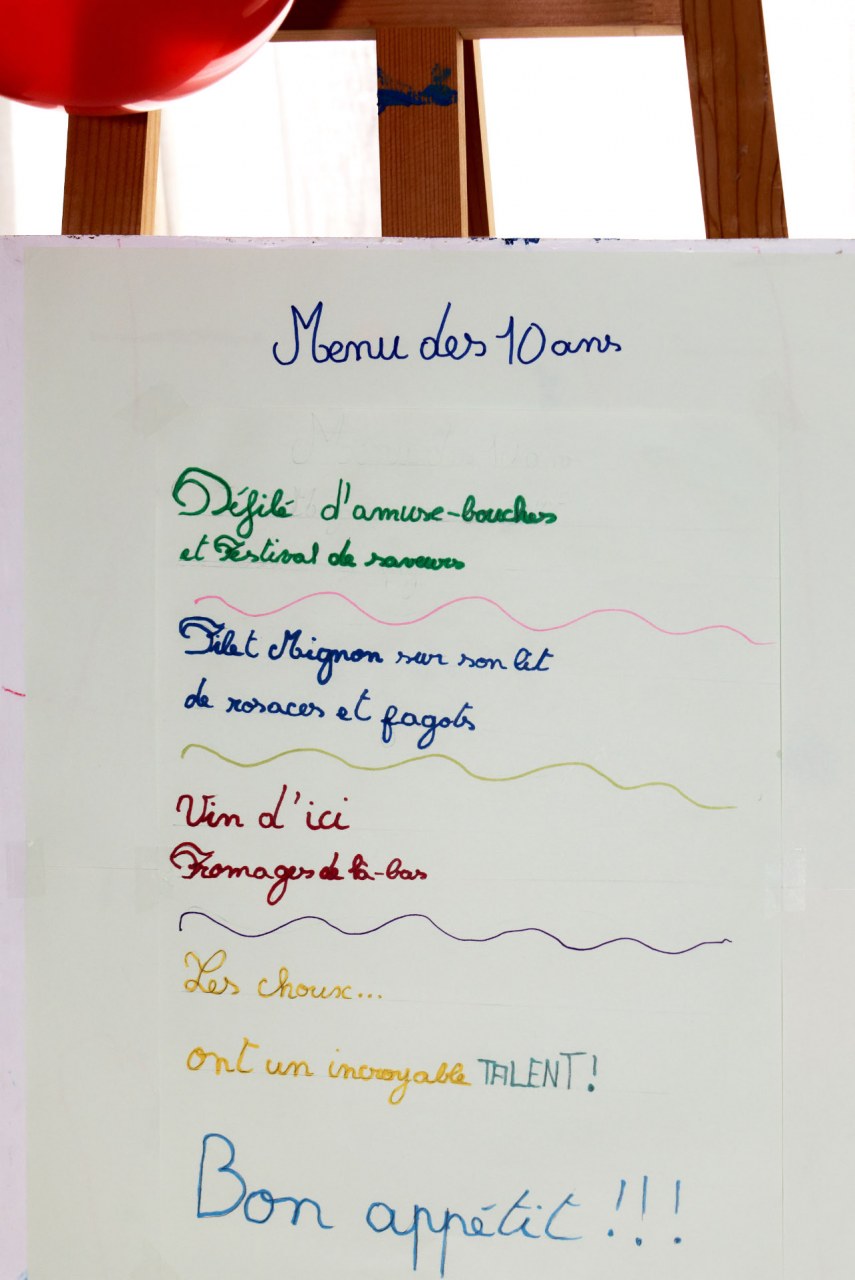 Menu des 10 ans
Défilé d'amuse-bouches
et Festival de saveurs
Filet Mignon sur son lit
de rosaces et fagots
Vin d'ici
Fromages de là-bas
Les choux...
ont un incroyable TALENT!
Bon appétit !!!